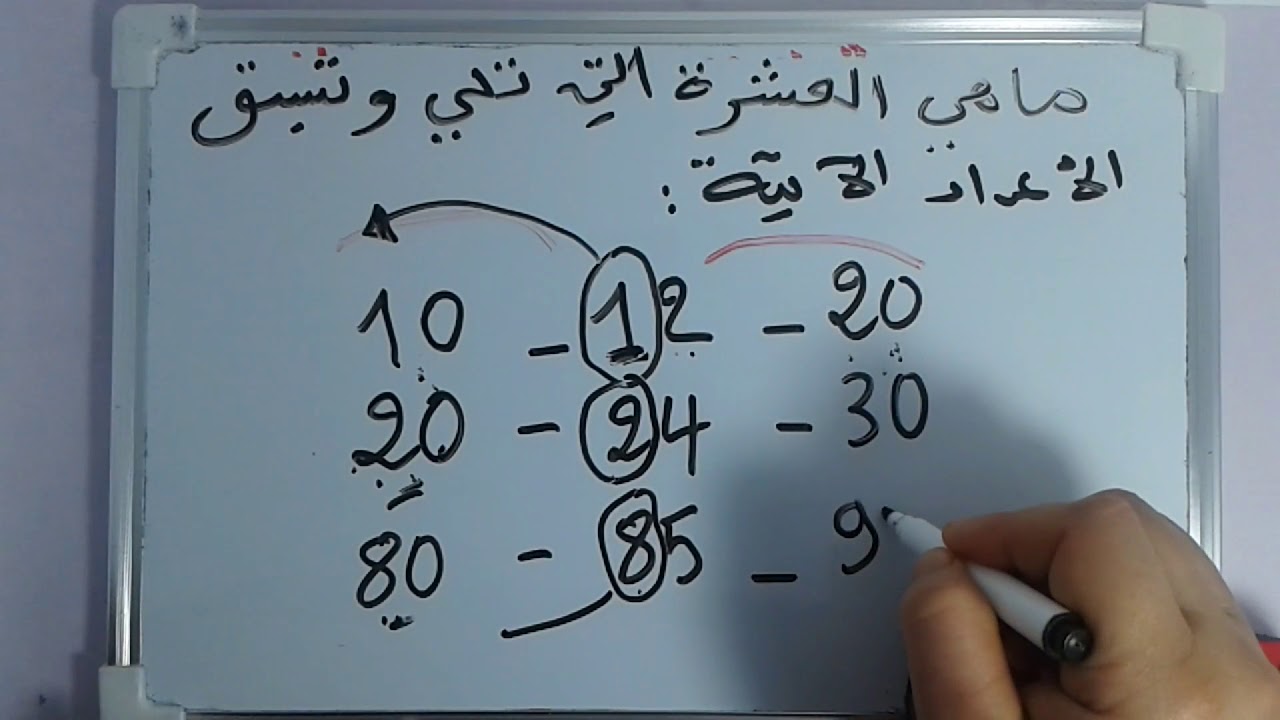 ماهي العشرة التي تلي وتسبق
الأعداد الآتية :
10 - 12 - 20
20 - 24 - 30
80 - 85 - 9